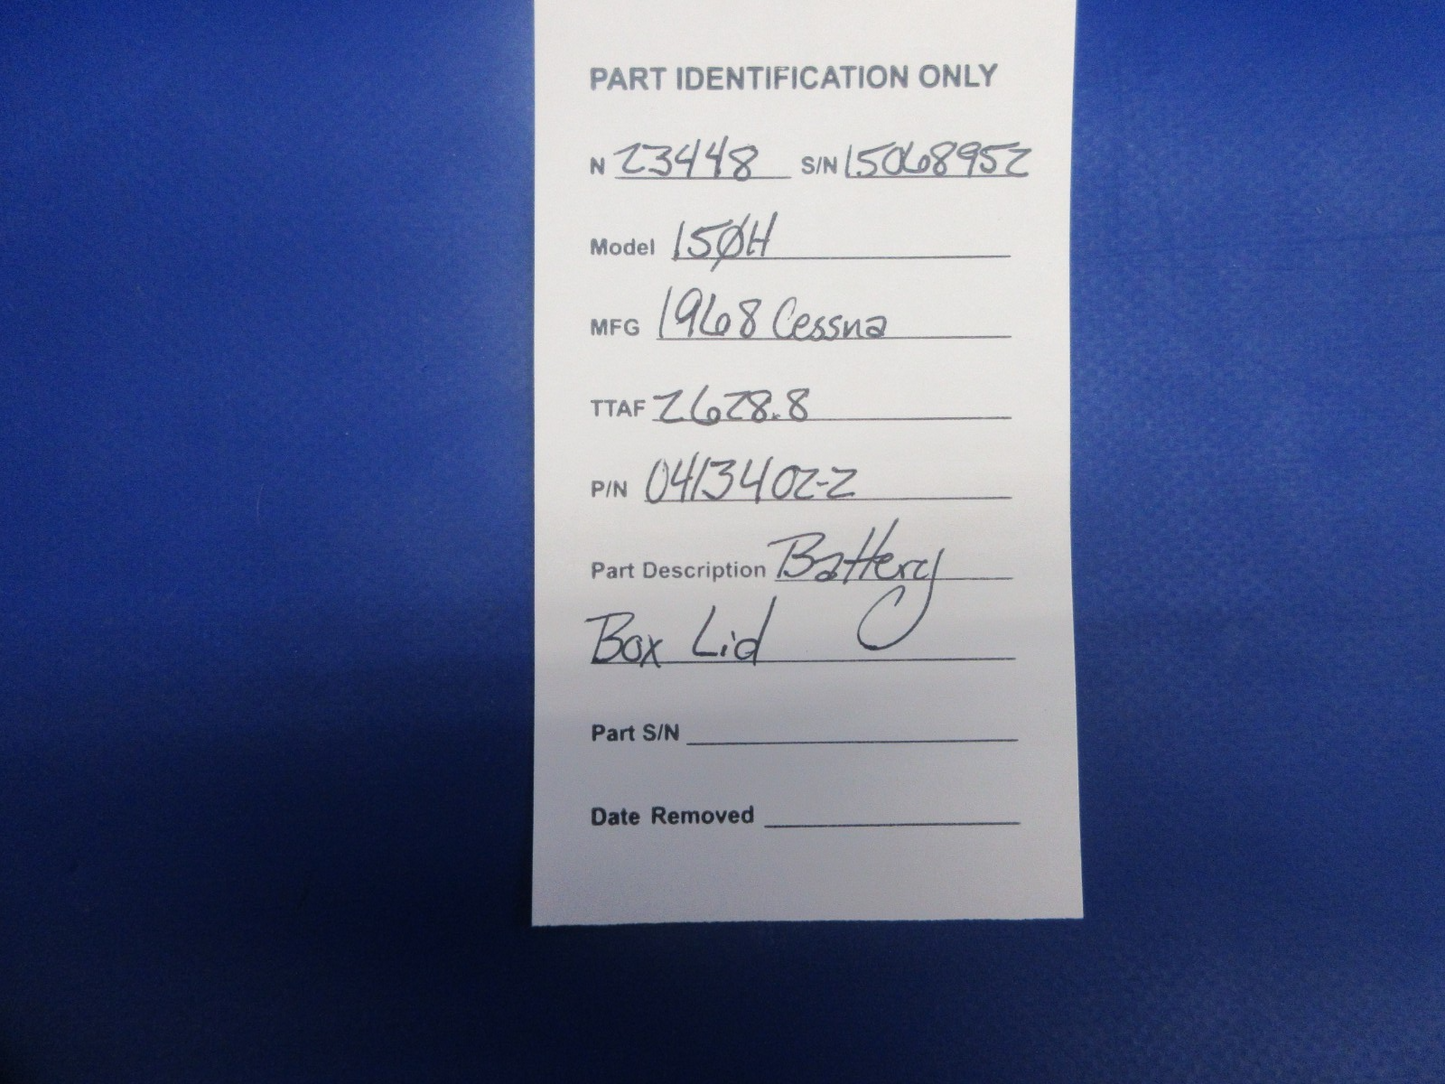 PART IDENTIFICATION ONLY
N 23448 S/N 15068952
Model 150H
MFG 1968 Cessna
TTAF 2628.8
P/N 0413402-2
Part Description Battery
Box Lid
Part S/N
Date Removed